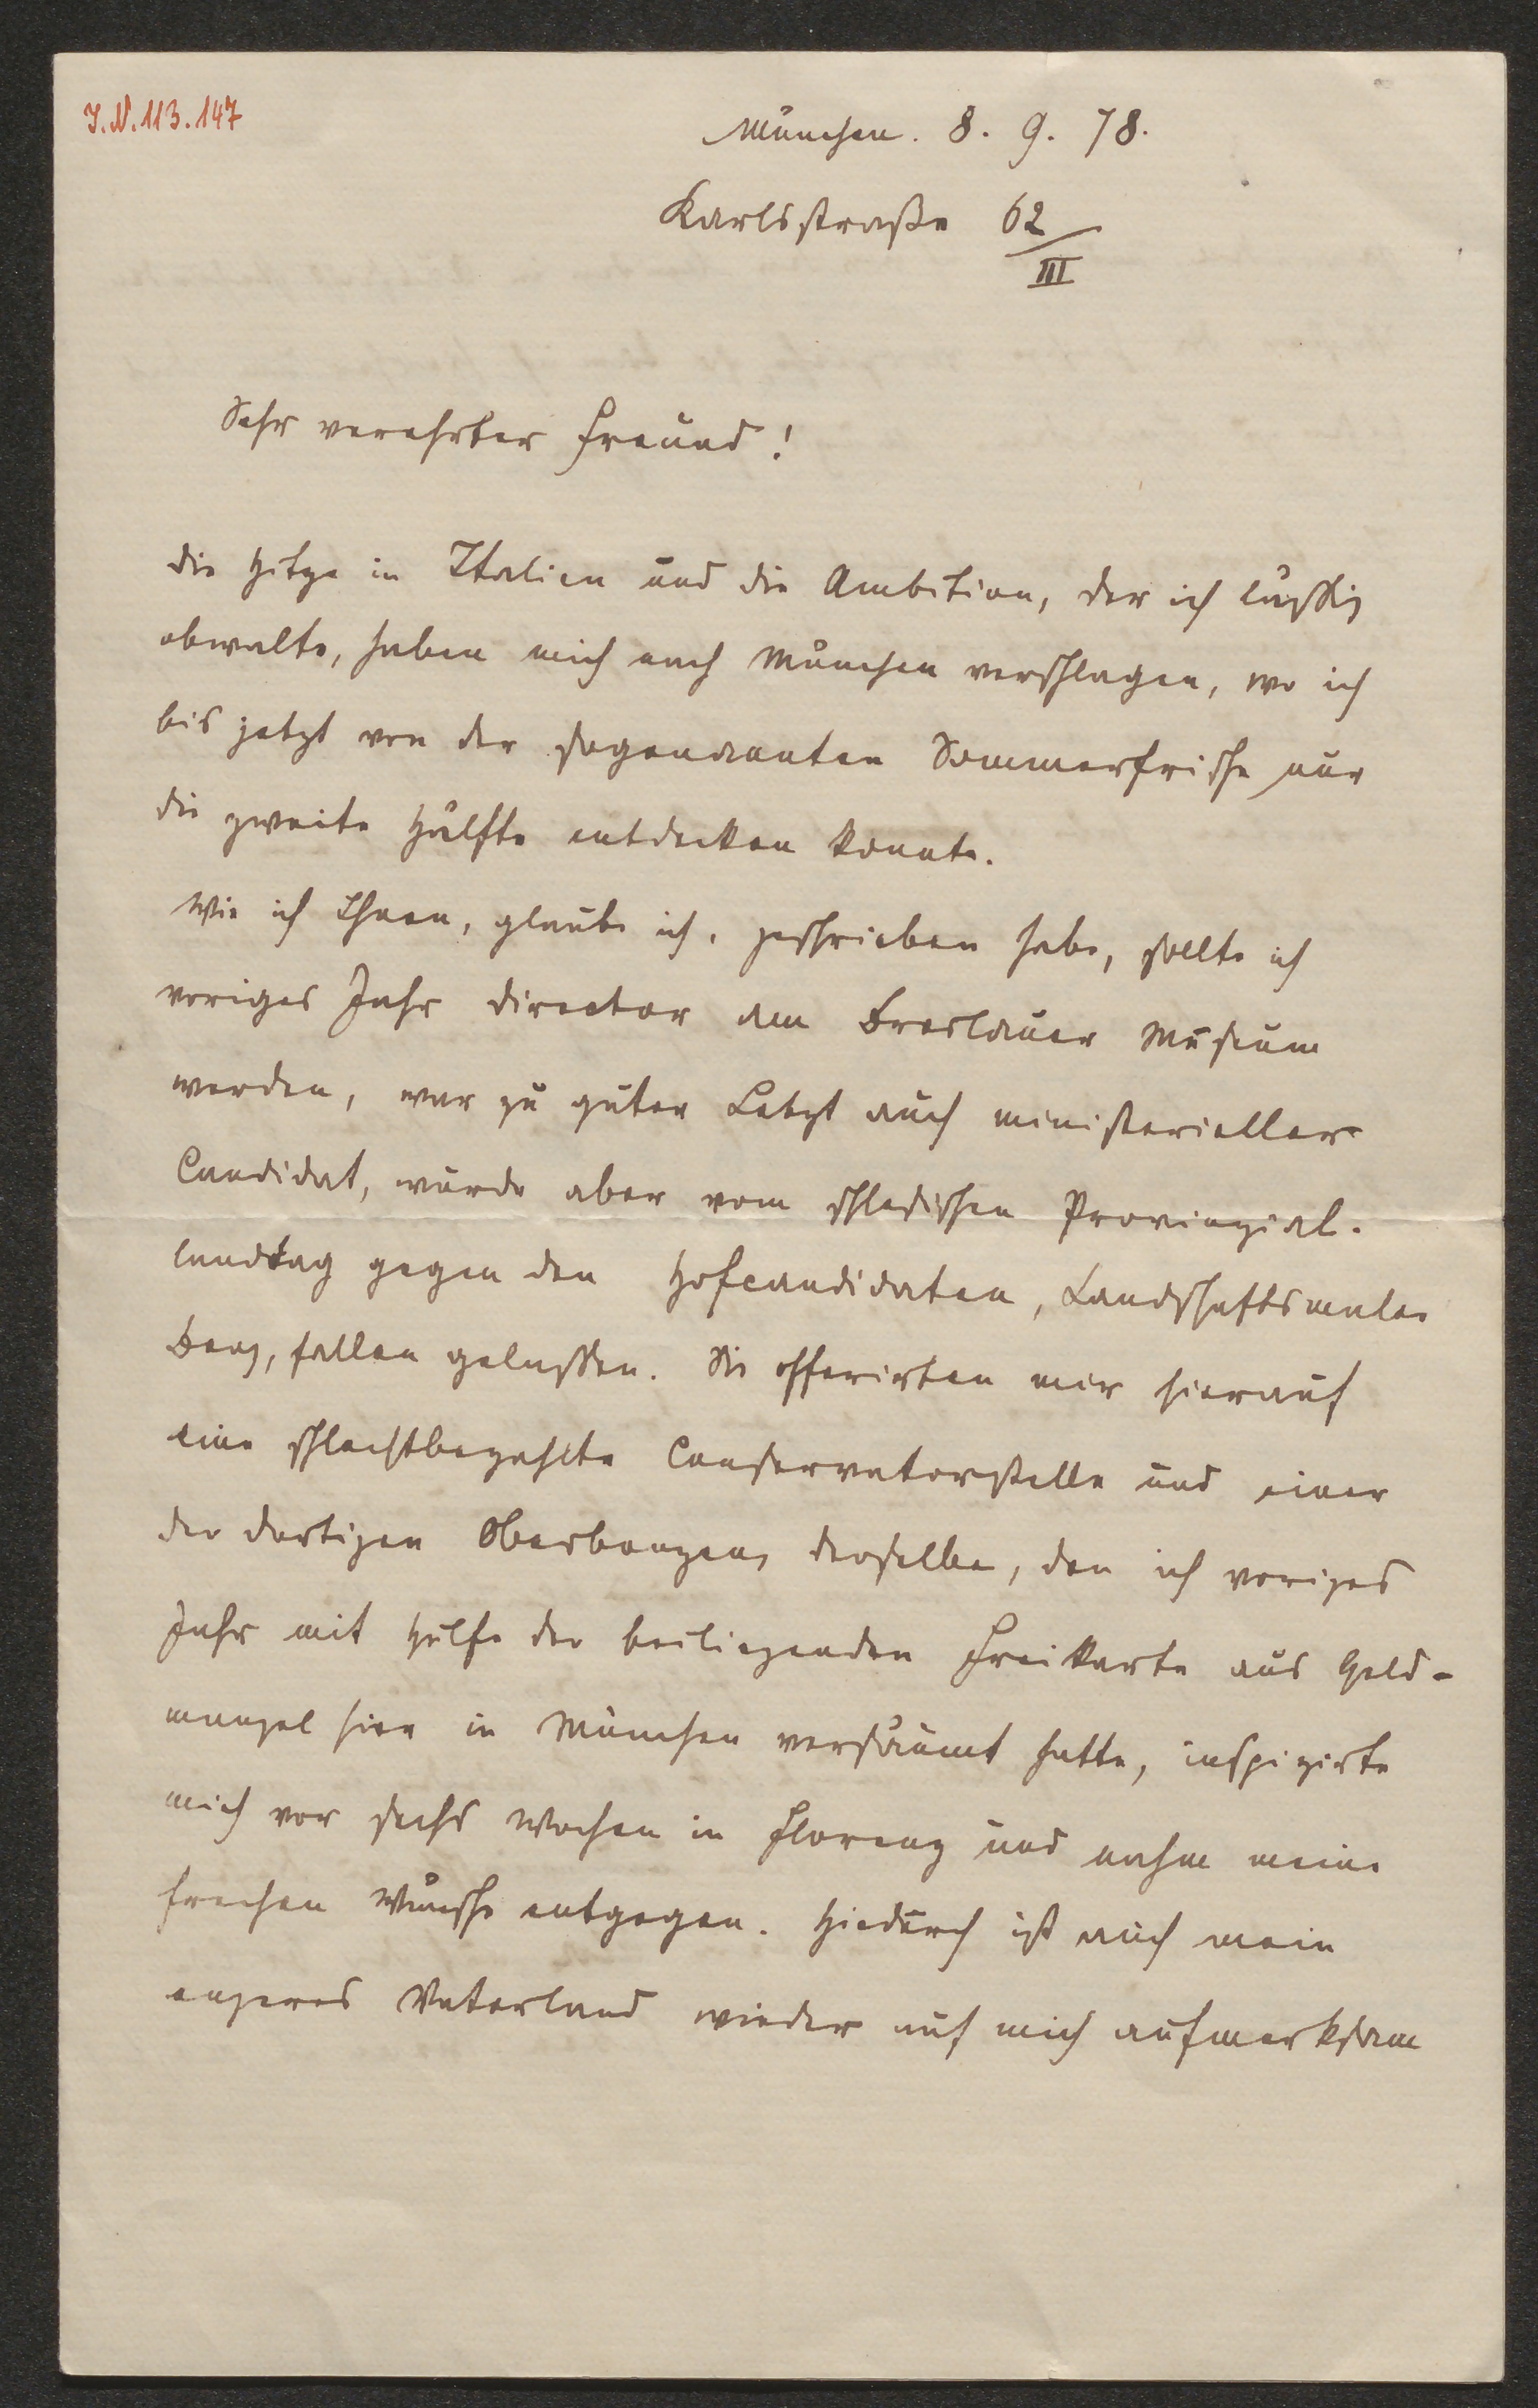 I.N. 113.147
München. 8. 9. 78.
Karlsstraße 62
III
Sehr verehrter Freund!
die Hitze in Italien und die Ambition, der ich lässig
obwalte, haben mich nach München verschlagen, wo ich
bis jetzt von der sogenannten Sommerfrische nur
die zweite Hälfte entdecken konnte.
Wie ich Ihnen, glaube ich, geschrieben habe, sollte ich
voriges Jahr Director am Breslauer Museum
werden, war zu guter Letzt auch ministerieller
Candidat, wurde aber vom schlesischen Provinzial-
landtag gegen den Hofcandidaten, Landschaftsmaler
Berg, fallen gelassen. Sie offerirten mir hierauf
eine schlechtbezahlte Conservatorstelle und einer
der dortigen Oberbonzen, derselbe, den ich voriges
Jahr mit Hülfe der beiliegenden Freikarte aus Geld-
mangel hier in München versäumt hatte, inspizirte
mich vor sechs Wochen in Florenz und nahm meine
frechen Wünsche entgegen. Hiedurch ist auch mein
engeres Vaterland wieder auf mich aufmerksam